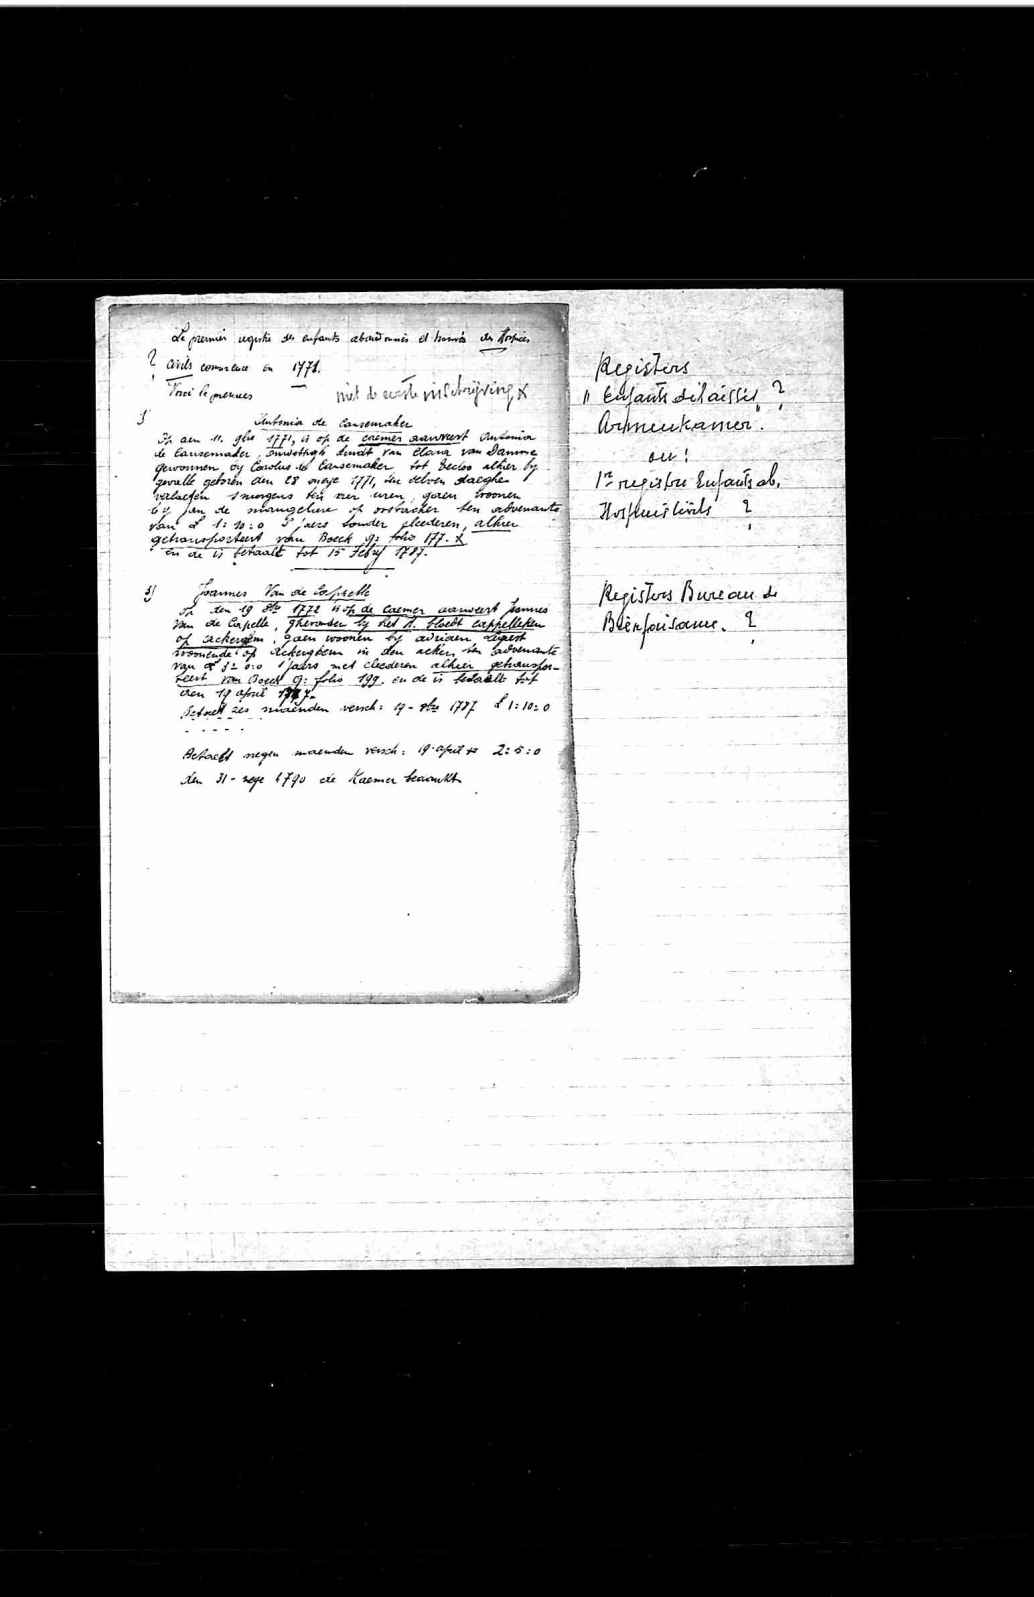 Le premier registre des enfants abandonnés et trouvés des Hospices
? civils commence en 1771.
Voici le premier
niet de eerste inschrijving x
1) Antonia de Causemaker
Op den 11. 9bre 1771, is op de caemer aanveert Antonia
de Causemaker, onwettigh kindt van Clara van Damme
gewonnen by Carolus de Causemaker tot Eecloo alhier by
gevalle geboren den 28 meye 1771, den selven daeghe
verlaeten smorgens ten vier uren, gaen woonen
by Jan de op oostacker ten advenante
van £ 1:10:0 s'jaers sonder cleederen, alhier
getransporteert van Boeck G: folio 177. x
en de is betaelt tot 15 1787.
3) Joannes Van de Cappelle
Op den 19 8bre 1772 is op de Caemer aanveert Joannes
Van de Capelle, ghevonden by het H. bloedt cappelleken
op Ackergem, gaen woonen by adriaen
woonende op Ackerghem in den acker, ten advenante
van £ 3:0:0 s'jaers met cleederen alhier getranspor-
teert van Boeck G: folio 199. en de is betaelt tot
den 19 april 1787.
Betaelt zes maenden versch: 19 - 8bre 1787 £ 1:10:0
- - - - -
Betaelt negen maenden versch: 19 april 2:5:0
den 31 - meye 1790 de Kaemer
Registers
" Enfants délaissés ?
Armenkamer".
ou !
1er registre Enfants ab.
Hospices Civils ?
Registers Bureau de
Bienfaisance. ?